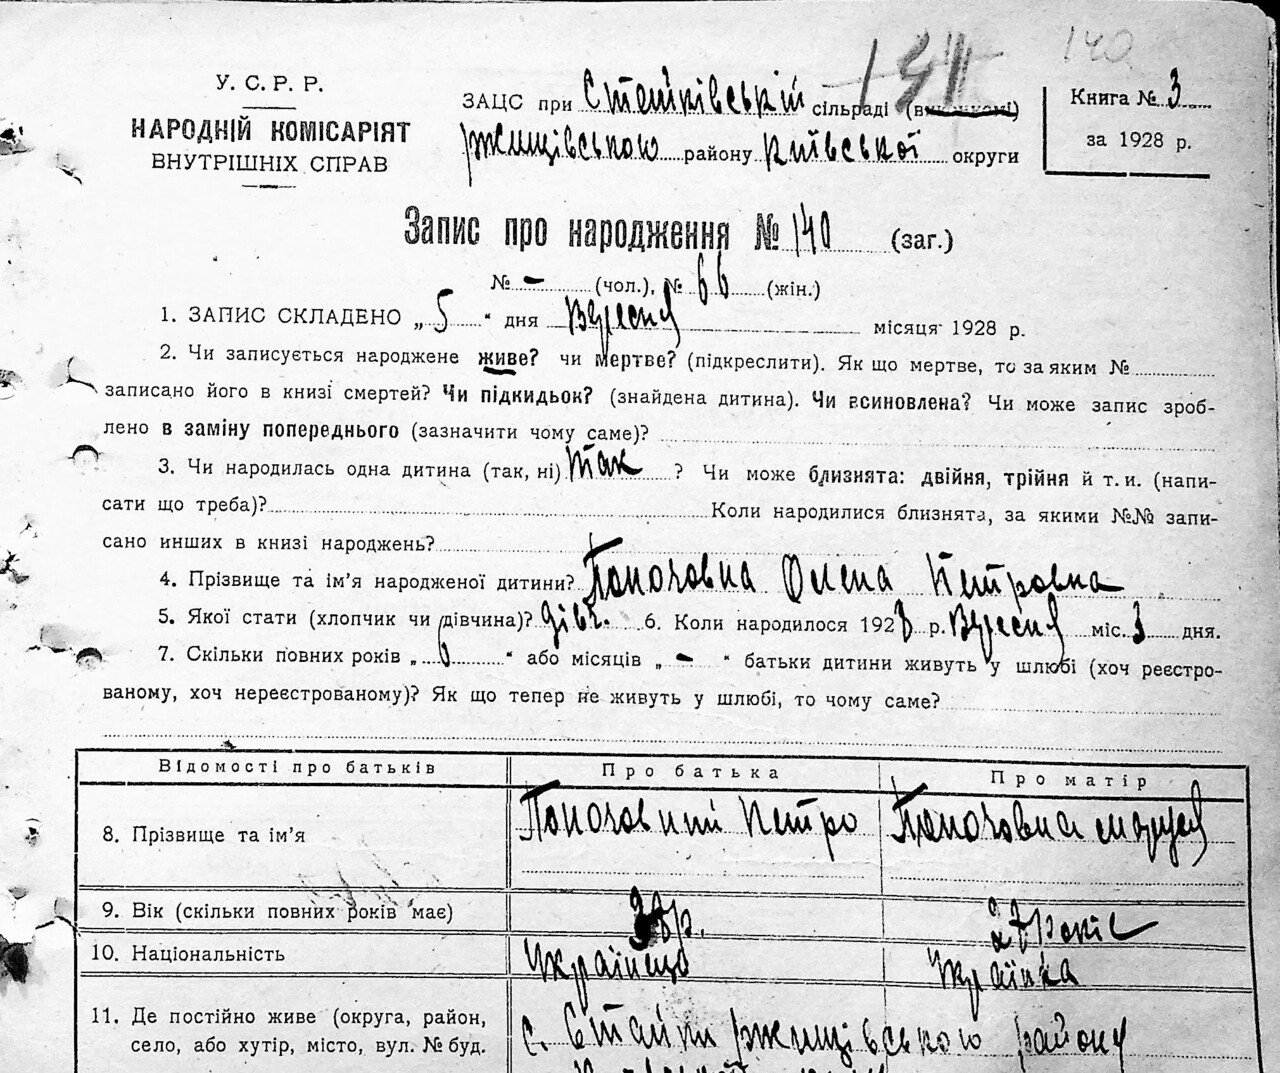 140
141
У. С. Р. Р.
НАРОДНІЙ КОМІСАРІЯТ
ВНУТРІШНІХ СПРАВ
ЗАЦС при Стайківській сільраді (виконкомі)
Ржищівського району Київської округи
Книга № 3
за 1928 р.
Запис про народження № 140 (заг.)
№ - (чол.), № 66 (жін.)
1. ЗАПИС СКЛАДЕНО „ 5 “ дня Вересня місяця 1928 р.
2. Чи записується народжене живе? чи мертве? (підкреслити). Як що мертве, то за яким №
записано його в книзі смертей? Чи підкидьок? (знайдена дитина). Чи всиновлена? Чи може запис зроб-
лено в заміну попереднього (зазначити чому саме)?
3. Чи народилась одна дитина (так, ні) так ? Чи може близнята: двійня, трійня й т. и. (напи-
сати що треба)? Коли народилися близнята, за якими №№ запи-
сано инших в книзі народжень?
4. Прізвище та ім’я народженої дитини? Олена Петровна
5. Якої стати (хлопчик чи дівчина)? дівч. 6. Коли народилося 1928 р. Вересня міс. 3 дня.
7. Скільки повних років „ 6 “ або місяців „ - “ батьки дитини живуть у шлюбі (хоч реєстро-
ваному, хоч нереєстрованому)? Як що тепер не живуть у шлюбі, то чому саме?
Відомості про батьків Про батька Про матір
8. Прізвище та ім’я Петро Маруся
9. Вік (скільки повних років має) р. 27 років
10. Національність Українець Українка
11. Де постійно живе (округа, район,
село, або хутір, місто, вул. № буд.
с. Стайки Ржищівського району